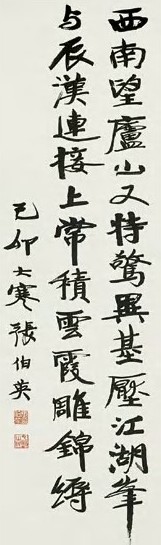 西南望廬山又特驚異基壓江湖峯
与辰漢連接上常積雲霞雕錦縟
己卯大寒張伯英